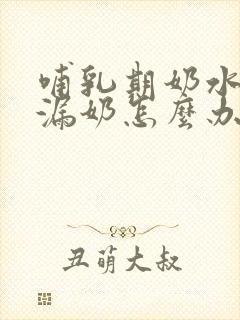 哺乳期奶水
漏奶怎麼办
丑萌大叔